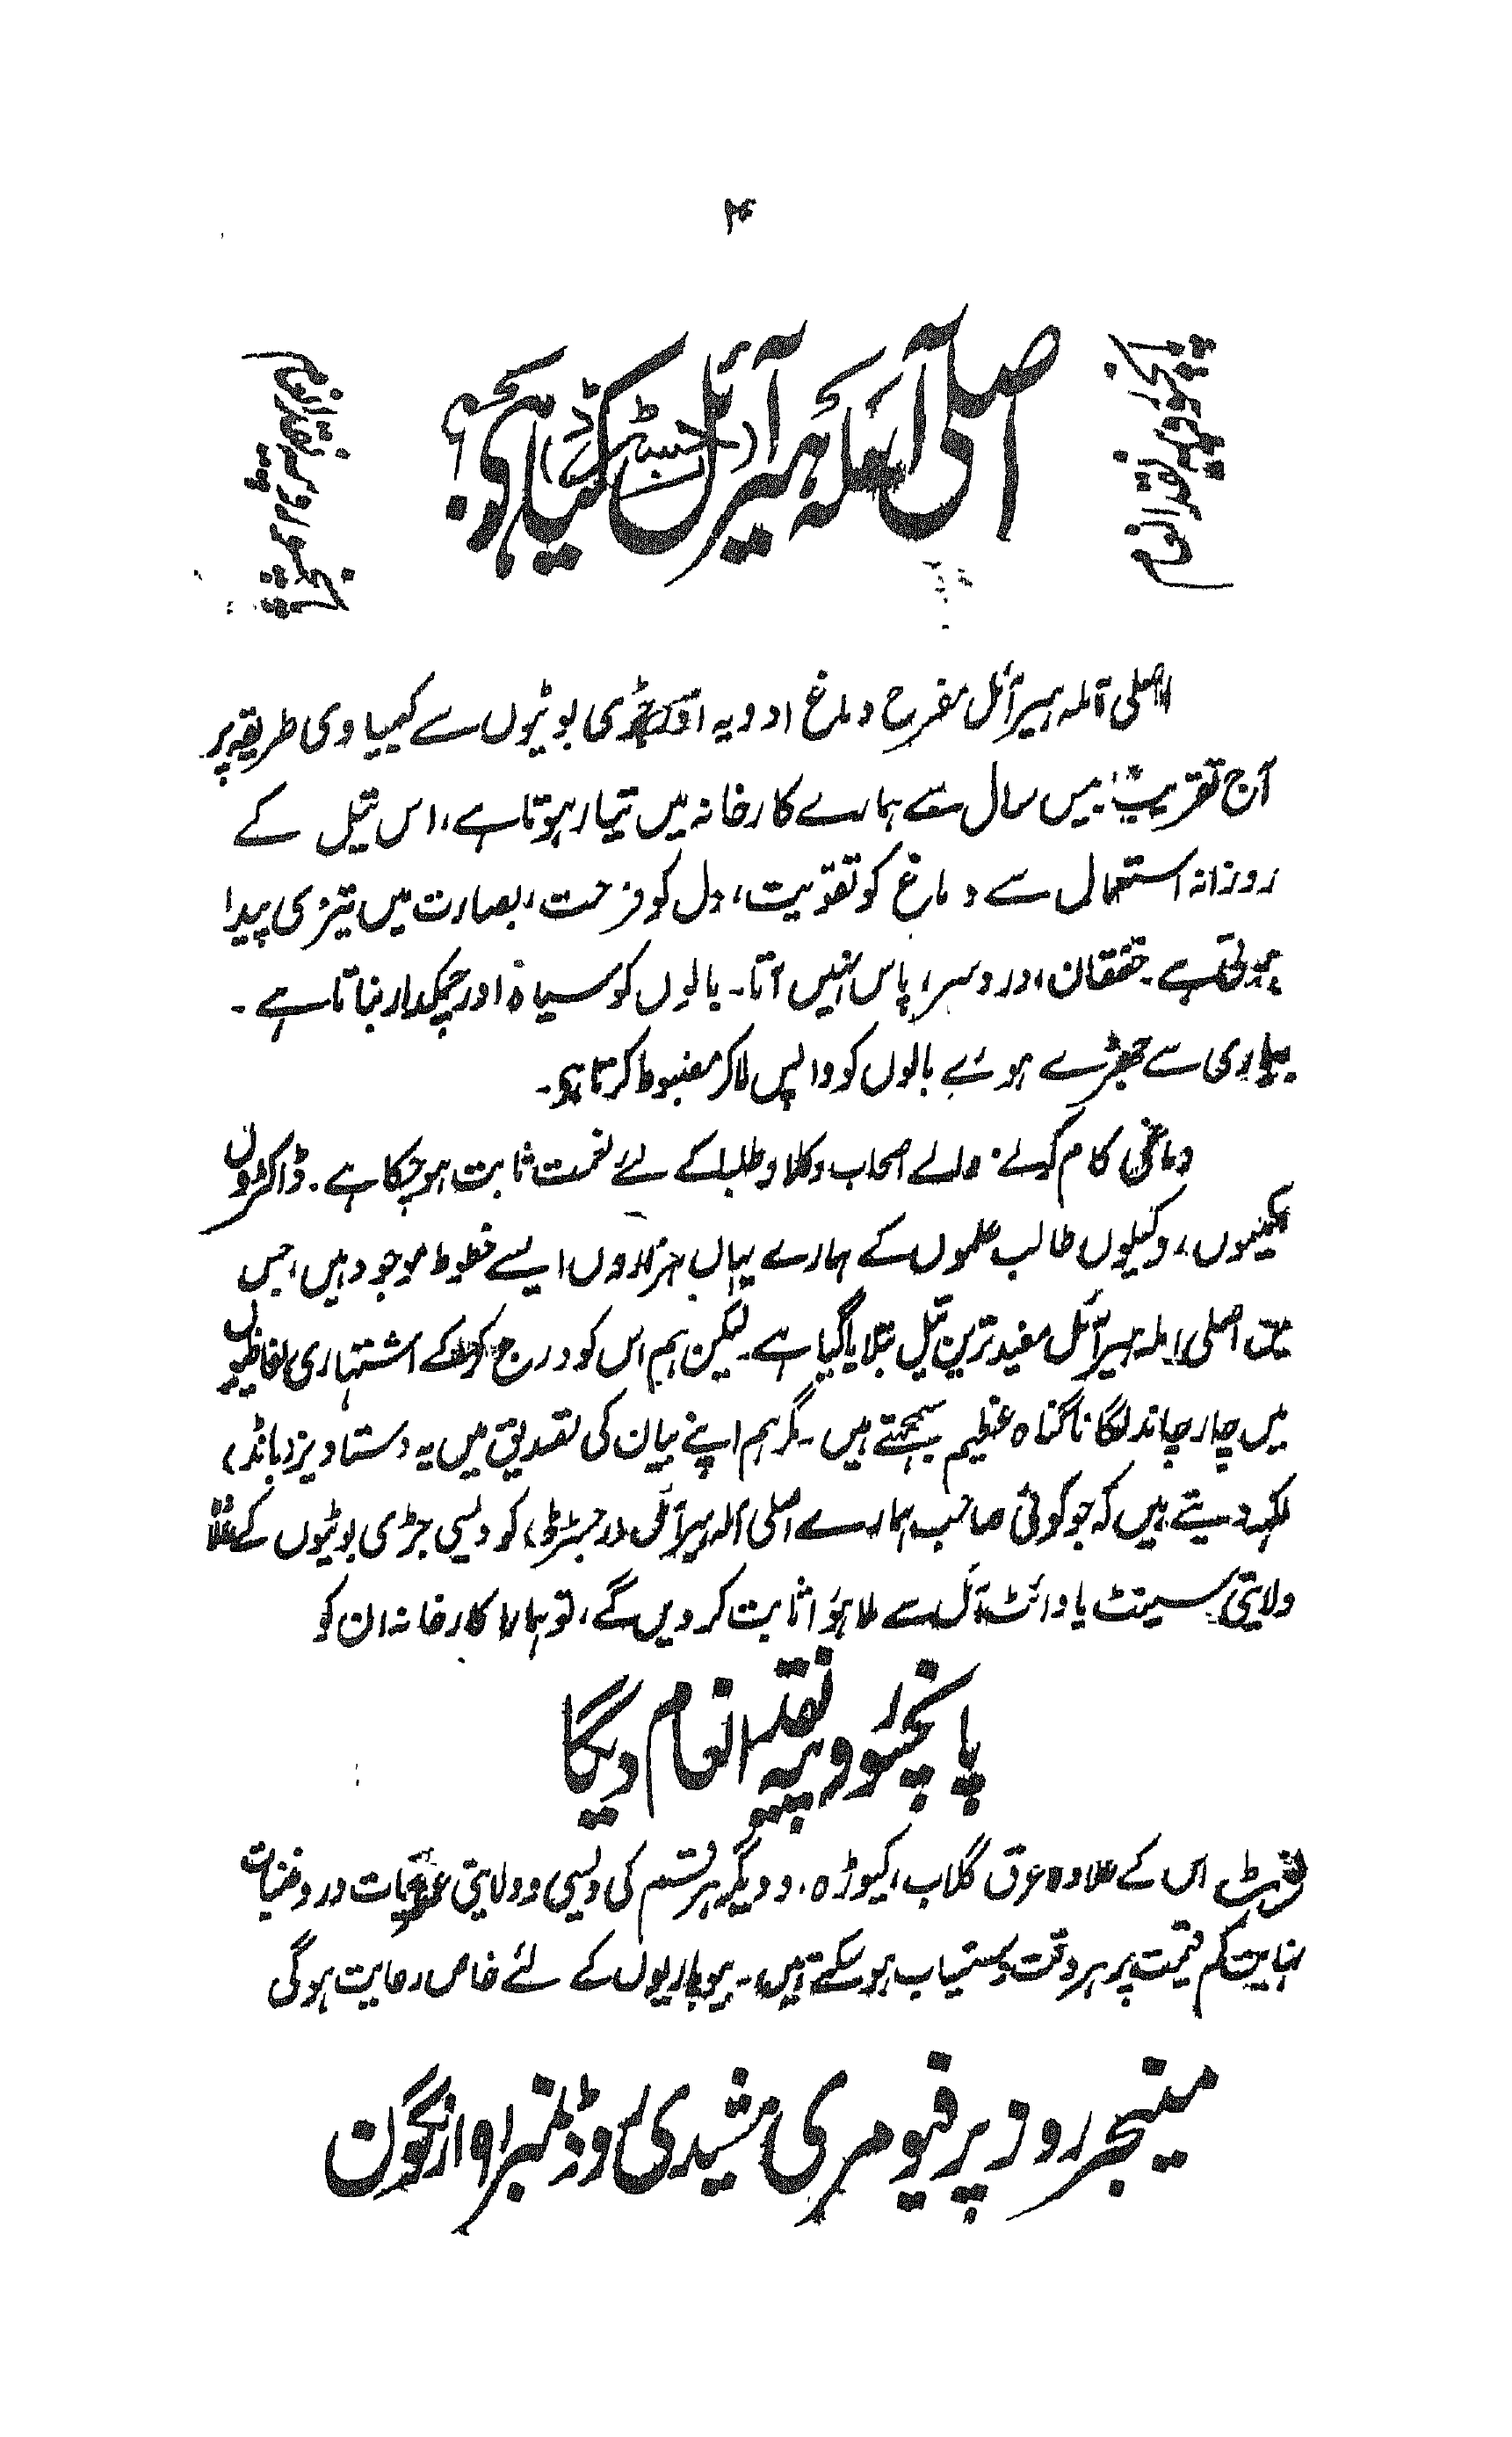 ۴
پانچسو روپیہ نقد انعام
اصلی آملہ ہیر آئل (رجسٹرڈ) کیا ہے؟
پانچسو روپیہ نقد انعام
اصلی آملہ ہیر آئل مفرح دماغ ادویہ اور جڑی بوٹیوں سے کیمیاوی طریقہ پر
آج تقریباً بیس سال سے ہمارے کارخانہ میں تیار ہوتا ہے، اس تیل کے
روزانہ استعمال سے دماغ کو تقویت، دل کو فرحت، بصارت میں تیزی پیدا
ہوتی ہے۔ خفقان، دردسر، پاس نہیں آتا۔ بالوں کو سیاہ اور چمکدار بناتا ہے۔
بیماری سے جھڑے ہوئے بالوں کو واپس لاکر مضبوط کرتا ہے۔
دماغی کام کرنے والے اصحاب وکلا و طلبا کے لئے نعمت ثابت ہو چکا ہے۔ ڈاکٹروں
حکیموں، وکیلوں طالب علموں کے ہمارے یہاں ہزاروں ایسے خطوط موجود ہیں، جس
میں اصلی املہ ہیر آئل مفید ترین تیل بتلایا گیا ہے۔ لیکن ہم اس کو درج کرکے اشتہاری لفاظیوں
میں چار چاند لگانا گناہ عظیم سمجہتے ہیں۔ مگر ہم اپنے بیان کی تصدیق میں یہ دستاویز (بانڈ)
لکہہ دیتے ہیں کہ جو کوئی صاحب ہمارے اصلی آملہ ہیر آئل (رجسٹرڈ) کو دیسی جڑی بوٹیوں کے علاوہ
ولایتی سینٹ یا وائٹ آئل سے ملا ہؤا ثابت کر دیں گے، تو ہمارا کارخانہ ان کو
پانچسو روپیہ نقد انعام دیگا
نوٹ اس کے علاوہ عرق گلاب، کیوڑہ، و دیگر ہر قسم کی دیسی و ولایتی عرقیات و روغنیات
نہایت کم قیمت پر ہر وقت دستیاب ہو سکتے ہیں۔ بیوپاریوں کے لئے خاص رعایت ہوگی
مینجر روز پرفیومری مشیدی روڈ نمبر ۹۱ رنگون